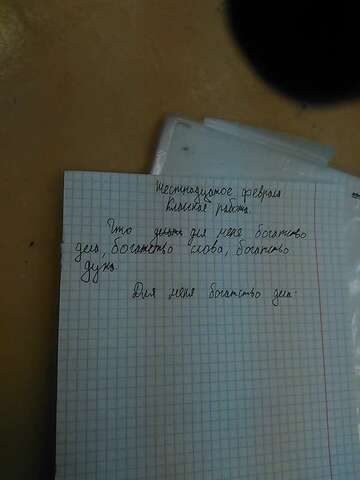 Шестнадцатое февраля
Классная работа.
Что для меня богатство
дела, богатство слова, богатство
духа.
Для меня богатство дела: